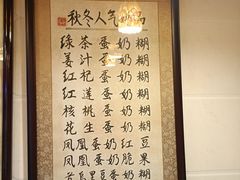 秋冬人气
绿茶蛋奶糊
姜汁蛋奶糊
红杞蛋奶糊
红莲蛋奶糊
核桃蛋奶糊
花生蛋奶糊
凤凰蛋奶红豆
凤凰蛋奶脆果
豆蛋奶